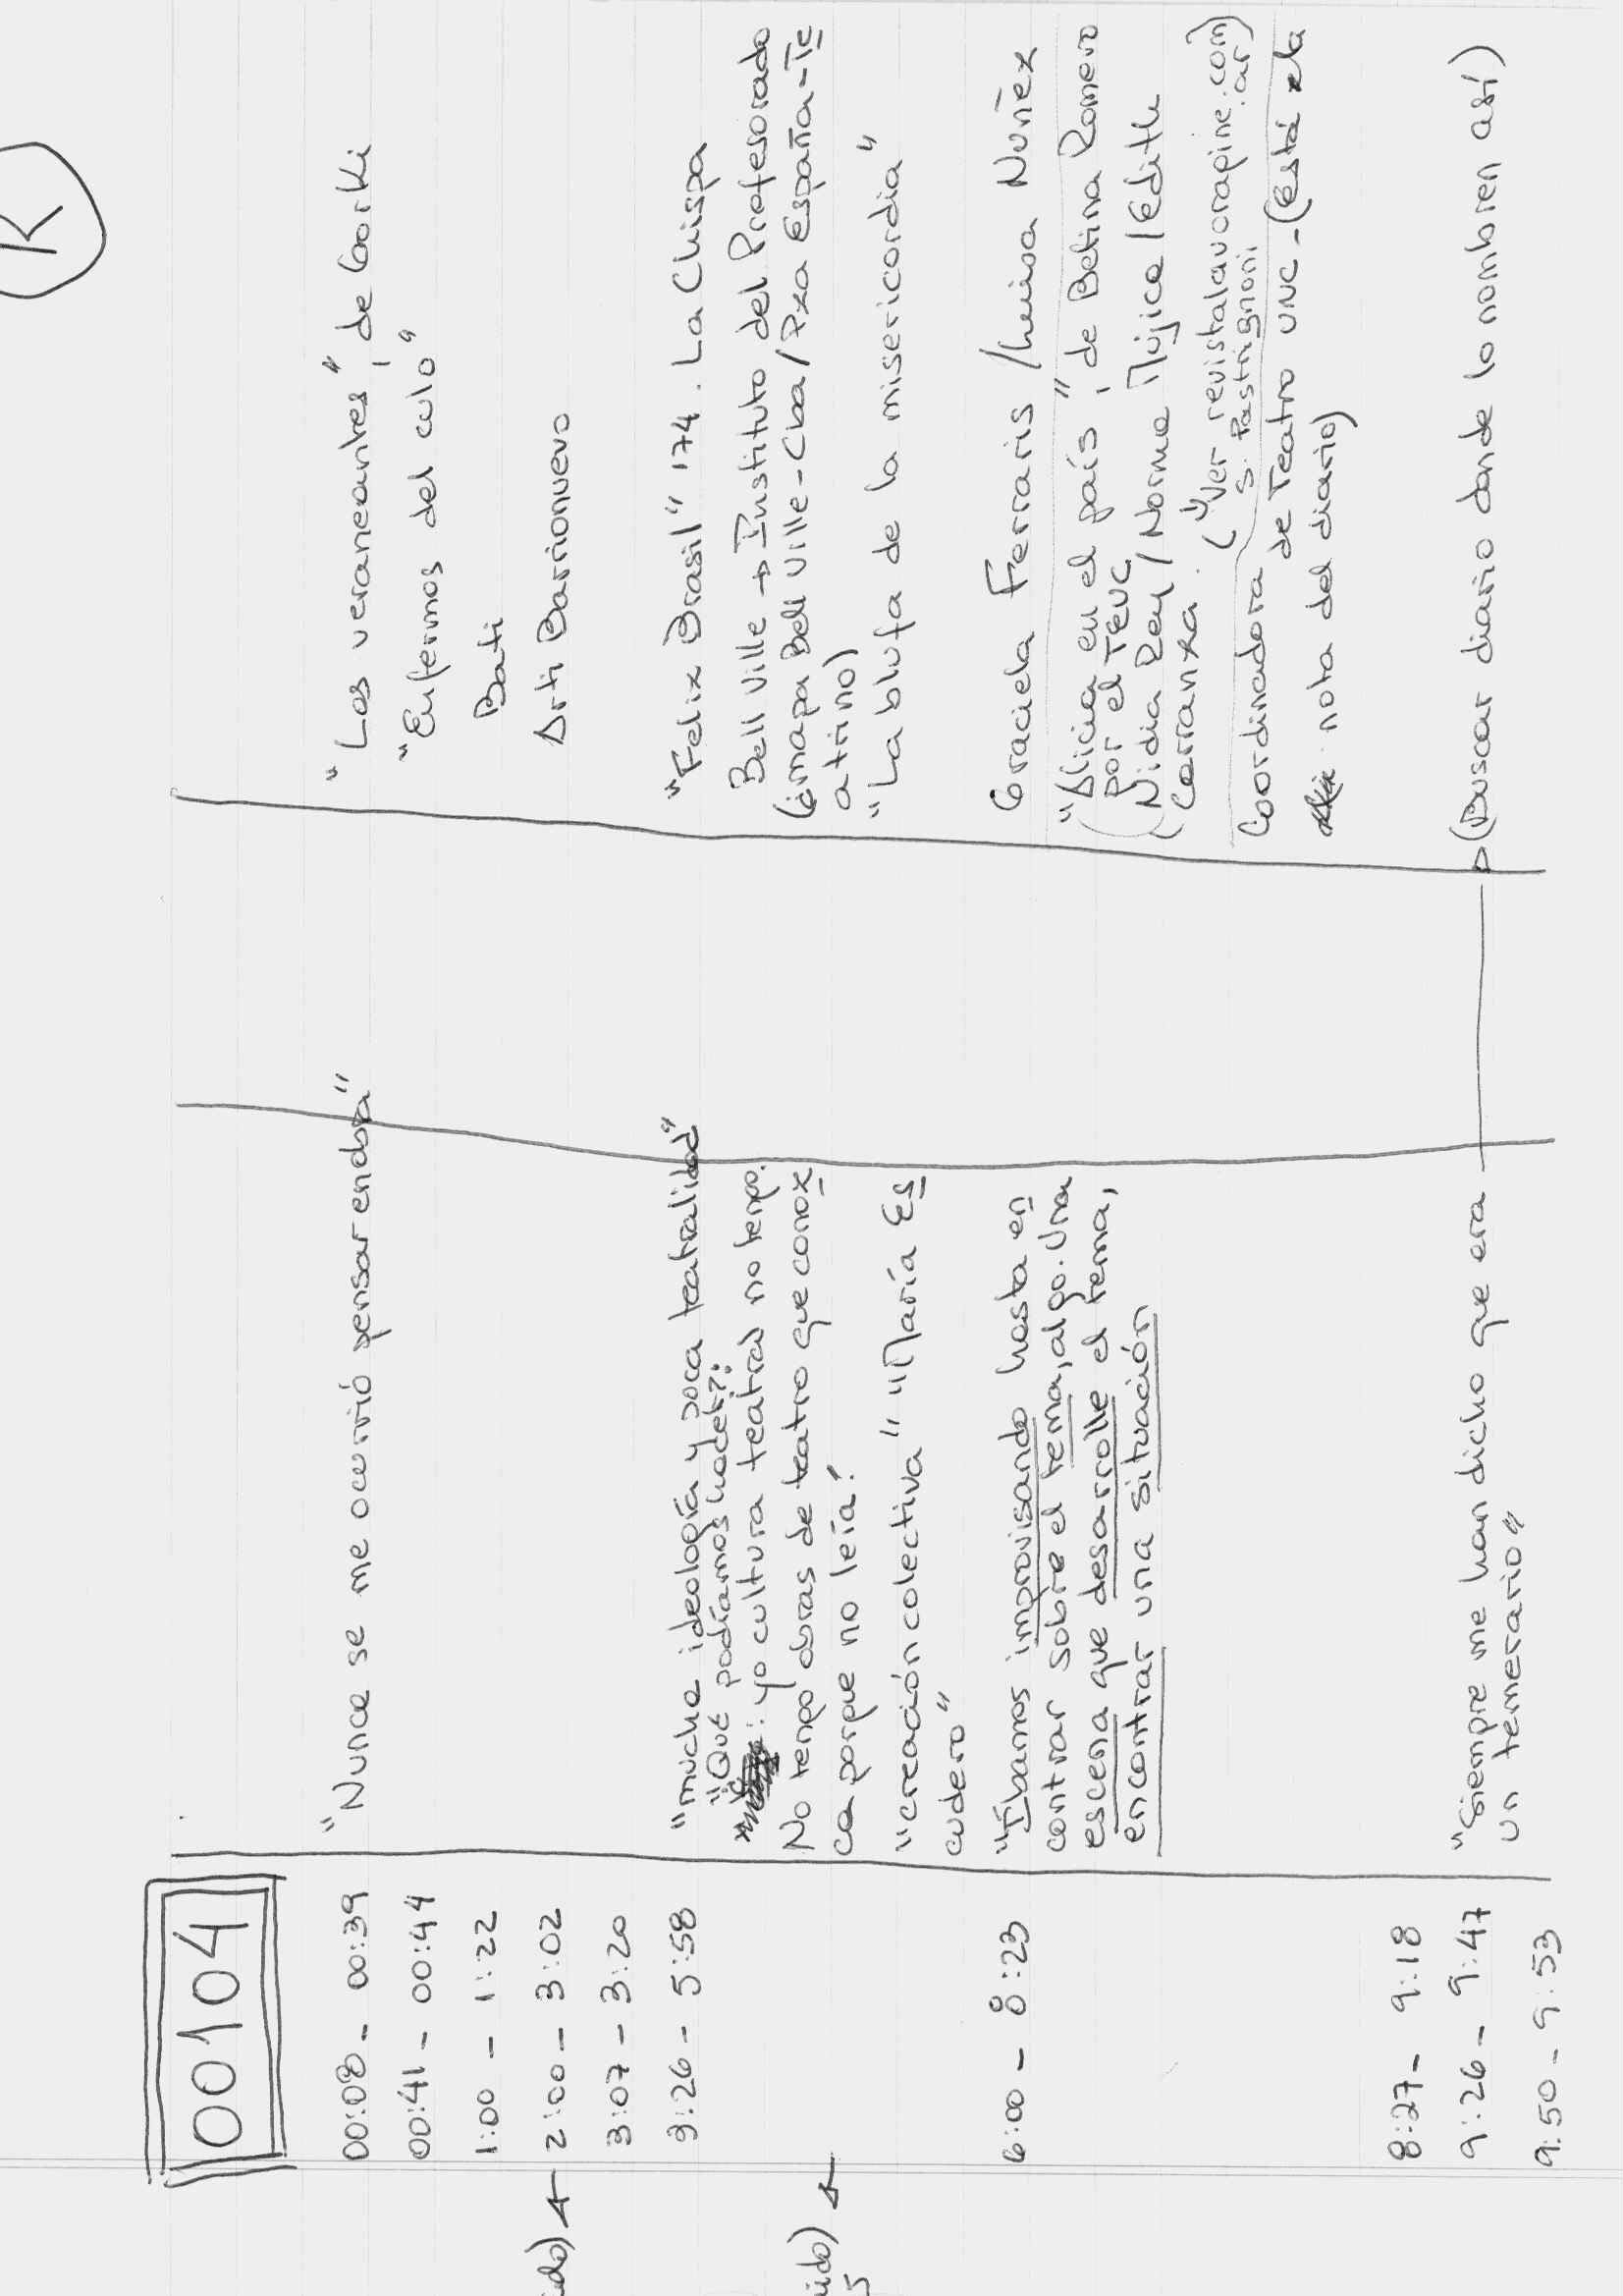 K
00104
00:08 - 00:39
"Nunca se me ocurrió pensar en obra"
"Los veraneantes", de Gorki
00:41 - 00:44
"Enfermos del culo"
1:00 - 1:22
Bati
2:00 - 3:02
Arti Barrionuevo
3:07 - 3:20
3:26 - 5:58
"mucha ideología y poca teatralidad"
"Qué podíamos hacer?:
yo cultura teatral no tengo.
No tengo obras de teatro que conoz
ca porque no leía!
"creación colectiva" "María Es
cudero"
"Felix Brasil" 174. La Chispa
Bell Ville → Instituto del Profesorado
(mapa Bell Ville - Cba / Pza España - Te
atrino)
"La blufa de la misericordia"
6:00 - 8:23
"Íbamos improvisando hasta en
contrar sobre el tema, algo. Una
escena que desarrolle el tema,
encontrar una situación
Graciela Ferraris / Luisa Nuñez
"Alicia en el país", de Betina Romero
por el TEUC
(Nidia Rey / Norma Mújica / Edith
Carranza. (Ver revistalavorapine.com
.ar)
S. Pastrignoni.
Coordinadora de Teatro UNC - (está x la
nota del diario)
8:27 - 9:18
9:26 - 9:47
"Siempre me han dicho que era
un temerario"
→ (Buscar diario donde lo nombren así)
9:50 - 9:53